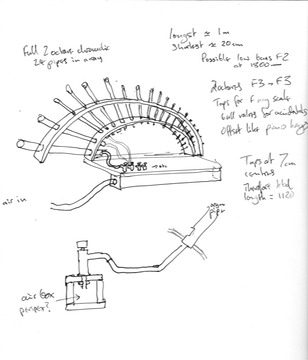 Full 2 octave chromatic
24 pipes in array
longest ≈ 1m
Shortest ≈ 20cm
Possible low bass F2
at 1800
2 octaves F3 - F3
Taps for F maj scale
ball valves for accidentals
Offset like piano keys
Taps at 7cm
centres
Therefore total
length = 1120
air in
drone
pipes
air box
proper?